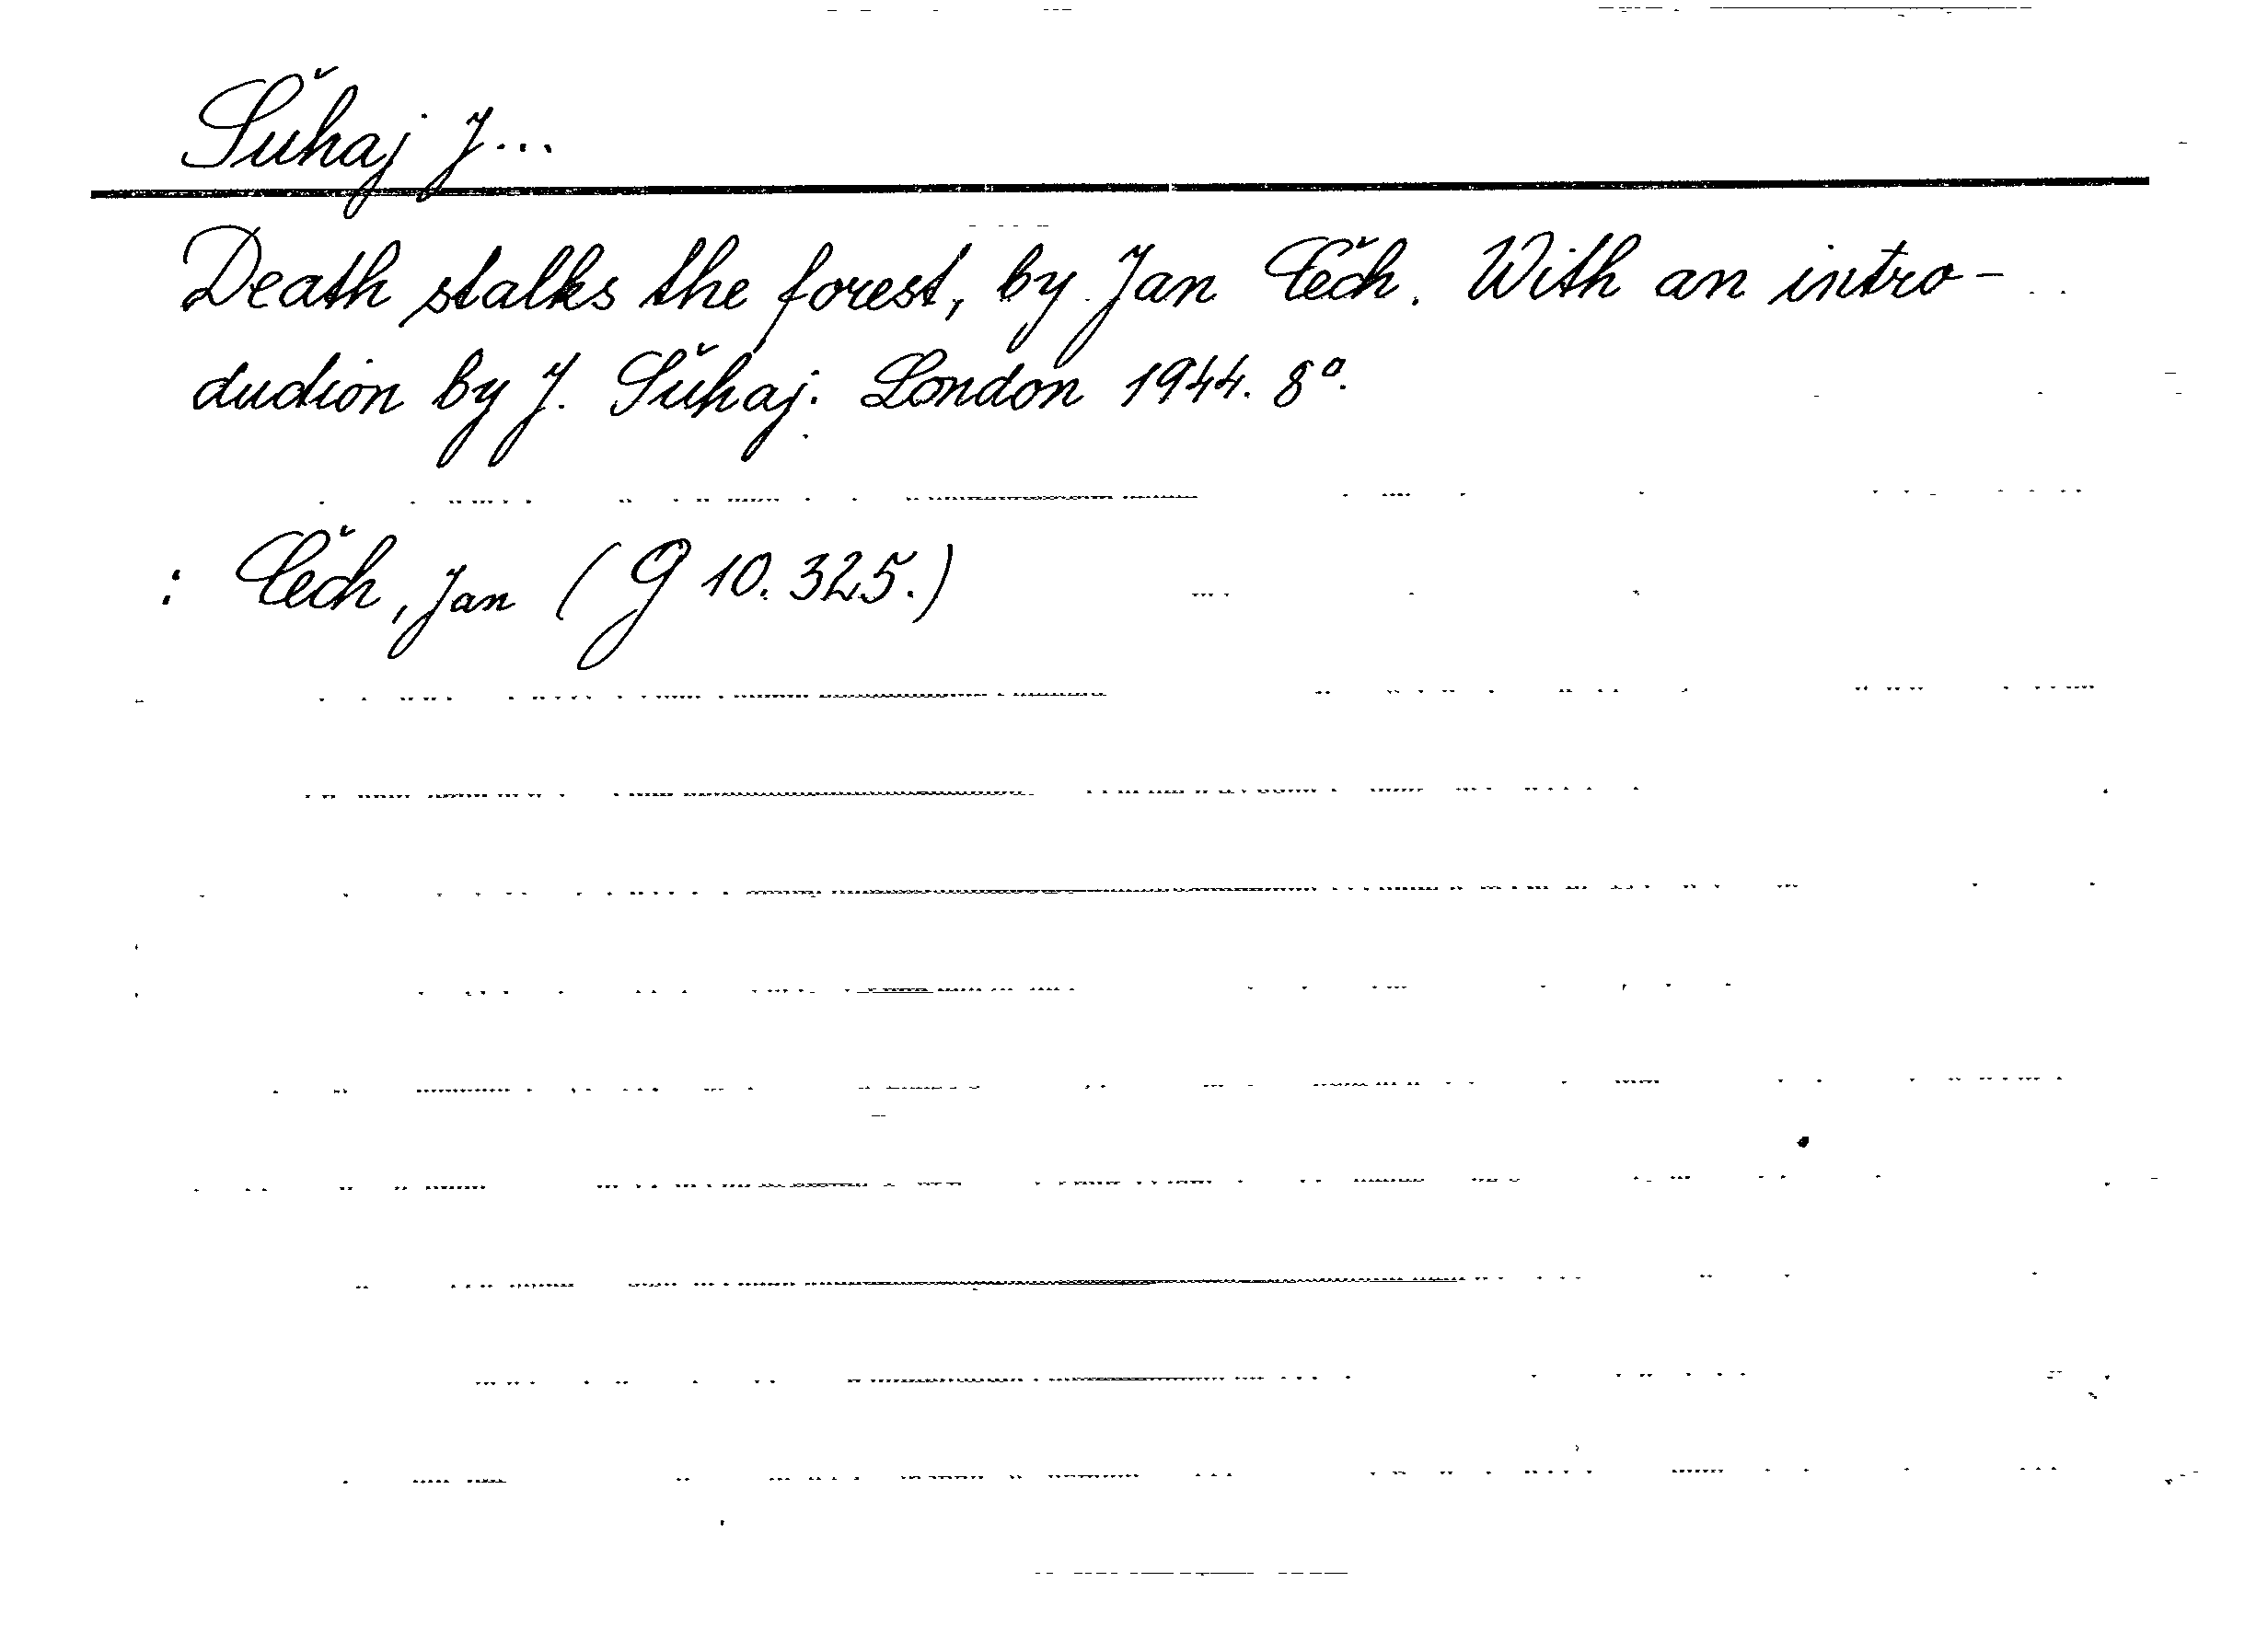 Šuhaj J...
Death stalks the forest, by Jan Čech. With an intro-
duction by J. Šuhaj. London 1944. 8°.
: Čech, Jan (G 10.325.)